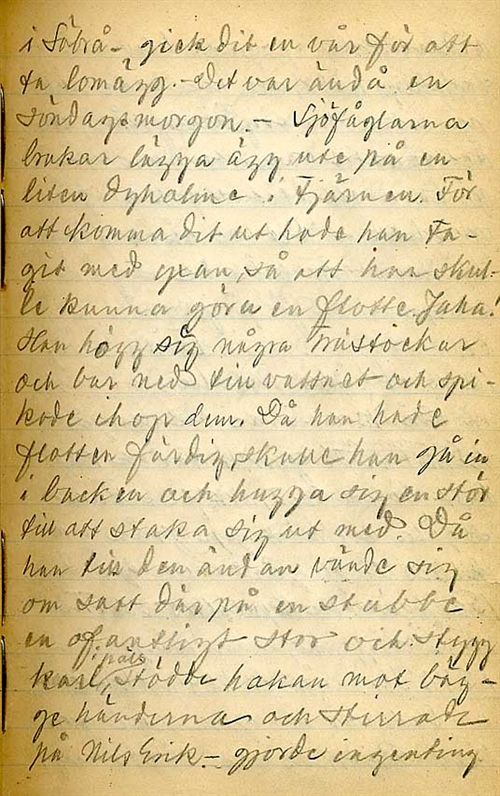 i Säbrå – gick dit en vår för att
ta lomägg. Det var ändå en
söndagsmorgon. – Sjöfåglarna
brukar lägga ägg ute på en
liten dyholme i tjärnen. För
att komma dit ut hade han ta-
git med yxan, så att han skul-
le kunna göra en flotte. Jaha!
Han högg sig några trästockar
och bar ned till vattnet och spi-
kade ihop dem. Då han hade
flotten färdig, skulle han gå in
i backen och hugga sig en stör
till att staka sig ut med. Då
han till den ändan vände sig
om satt där på en stubbe
en ofantligt stor och stygg
karl, stödde hakan mot båg-
ge händerna och stirrade
på Nils Erik – gjorde ingenting